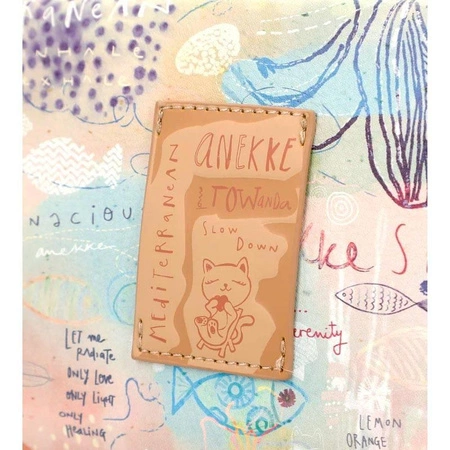 RANEAN
NHALE
XHALE
MEDITERRANEAN
ANEKKE
para
TOWanda
SLOW
DOWN
NACIOU
anekke
kke S
erenity
LET me
Radiate
ONLY Love
ONLY light
ONLY
Healing
LEMON
ORANGE